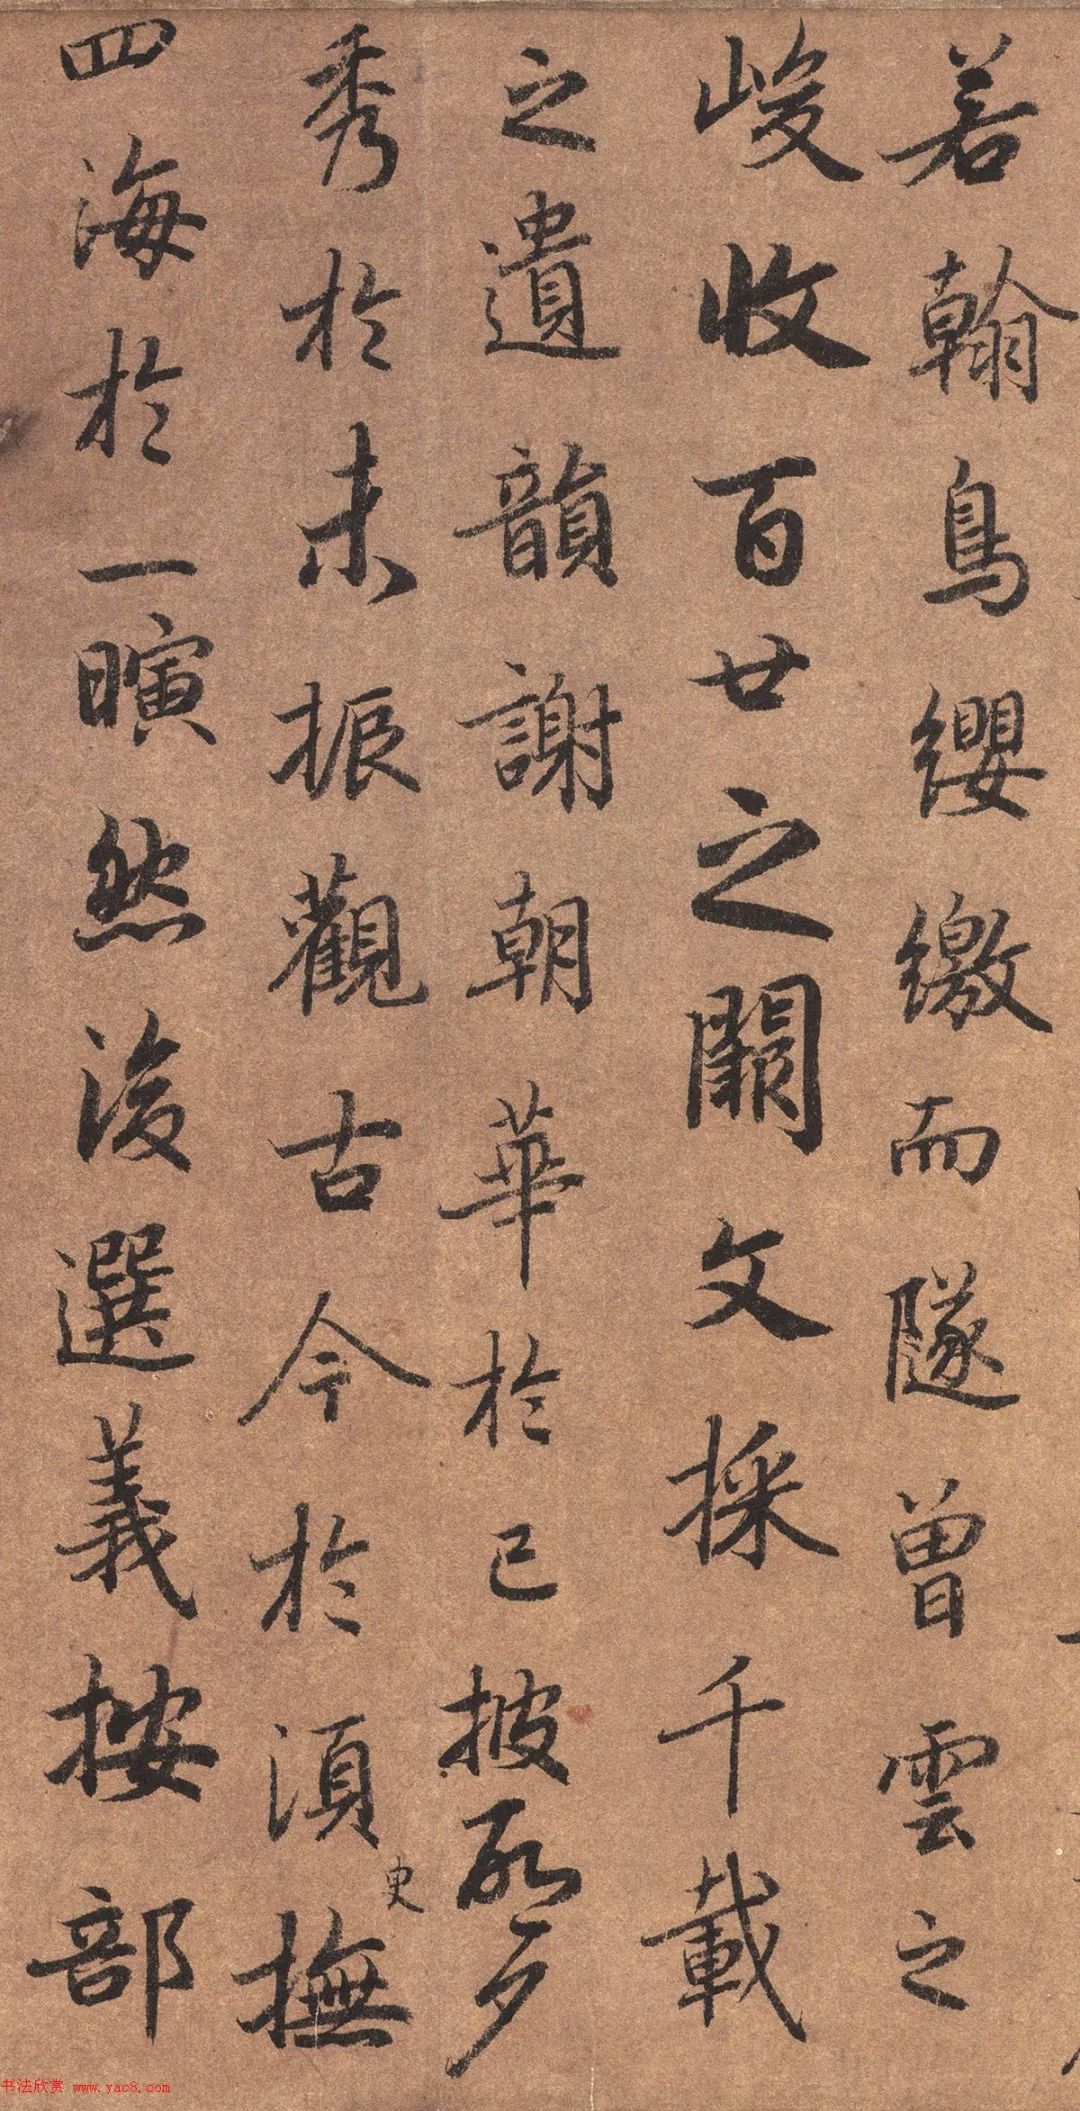 若翰鳥纓繳而隧曾雲之
峻收百廿之闕文採千載
之遺韻謝朝華於已披啓夕
秀於未振觀古今於須撫
史
四海於一瞚然後選義按部
书法欣赏 www.yac8.com